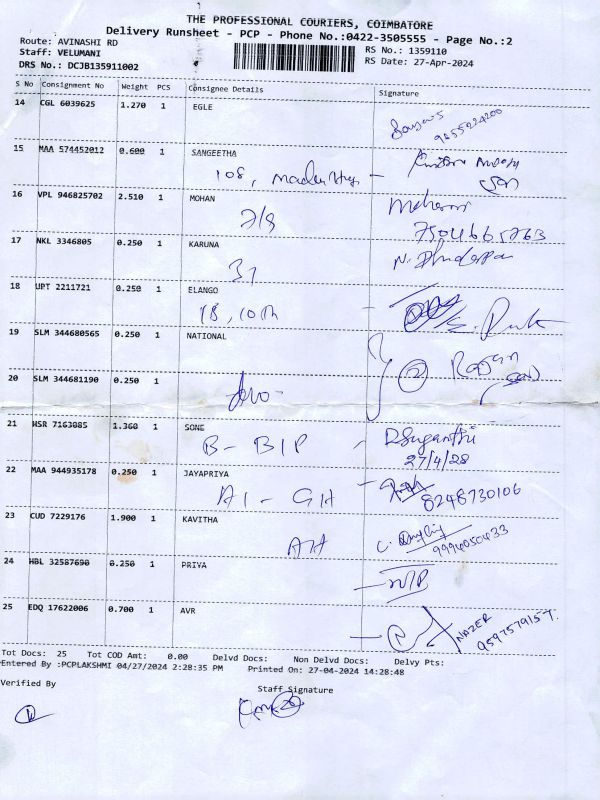 THE PROFESSIONAL COURIERS, COIMBATORE
Delivery Runsheet - PCP - Phone No.:0422-3505555 - Page No.:2
Route: AVINASHI RD
RS No.: 1359110
Staff: VELUMANI
RS Date: 27-Apr-2024
DRS No.: DCJB135911002
S No Consignment No Weight PCS Consignee Details Signature
14 CGL 6039625 1.270 1 EGLE
9655224200
15 MAA 574452012 0.600 1 SANGEETHA
108,
16 VPL 946825702 2.510 1 MOHAN
Mohan
7/8
17 NKL 3346805 0.250 1 KARUNA
37
18 UPT 2211721 0.250 1 ELANGO
18, 10th
19 SLM 344680565 0.250 1 NATIONAL
2 Rajan
20 SLM 344681190 0.250 1
21 HSR 7163085 1.360 1 SONE
B - BIP D Suganthi
27/4/28
22 MAA 944935178 0.250 1 JAYAPRIYA
A1 - GH 8248730106
23 CUD 7229176 1.900 1 KAVITHA
24 HBL 32587690 0.250 1 PRIYA
25 EDQ 17622006 0.700 1 AVR
NAZER
Tot Docs: 25 Tot COD Amt: 0.00 Delvd Docs: Non Delvd Docs: Delvy Pts:
Entered By :PCPLAKSHMI 04/27/2024 2:28:35 PM Printed On: 27-04-2024 14:28:48
Verified By
Staff Signature